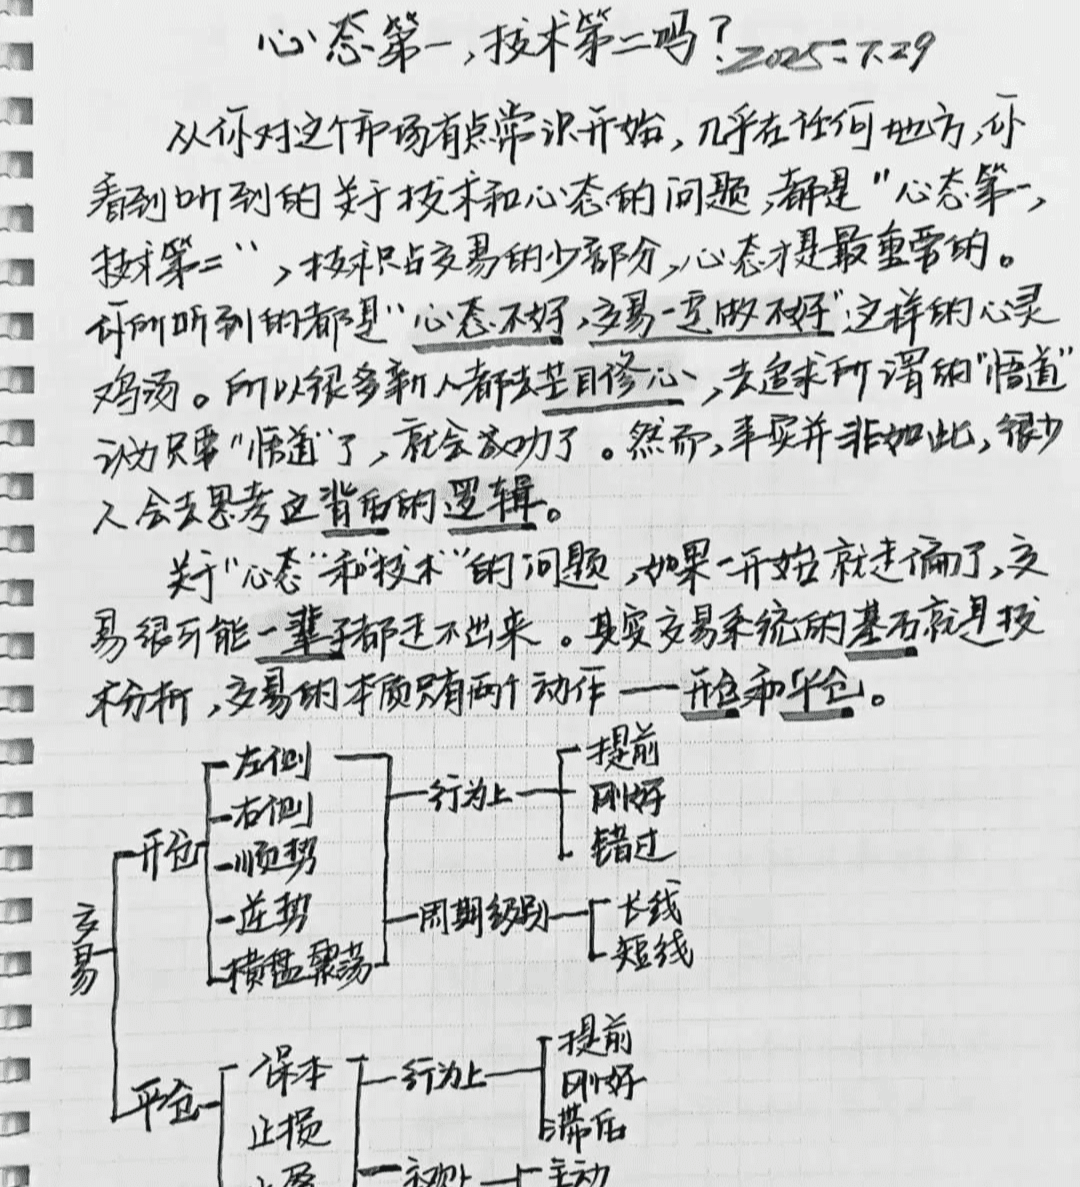 心态第一,技术第二吗? 2025.7.29
从你对这个市场有点常识开始,几乎在任何地方,你
看到听到的关于技术和心态的问题,都是"心态第一,
技术第二",技术只占交易的少部分,心态才是最重要的。
你所听到的都是"心态不好,交易一定做不好"这样的心灵
鸡汤。所以很多新人都去盲目修心,去追求所谓的"悟道"
认为只要"悟道"了,就会成功了。然而,事实并非如此,很少
人会去思考这背后的逻辑。
关于"心态"和"技术"的问题,如果一开始就走偏了,交
易很可能一辈子都走不出来。其实交易系统的基石就是技
术分析,交易的本质只有两个动作——开仓和平仓。
交易
开仓
左侧
右侧
顺势
逆势
横盘震荡
行为上
提前
刚好
错过
周期级别
长线
短线
平仓
保本
止损
止盈
行为上
提前
刚好
滞后
主动